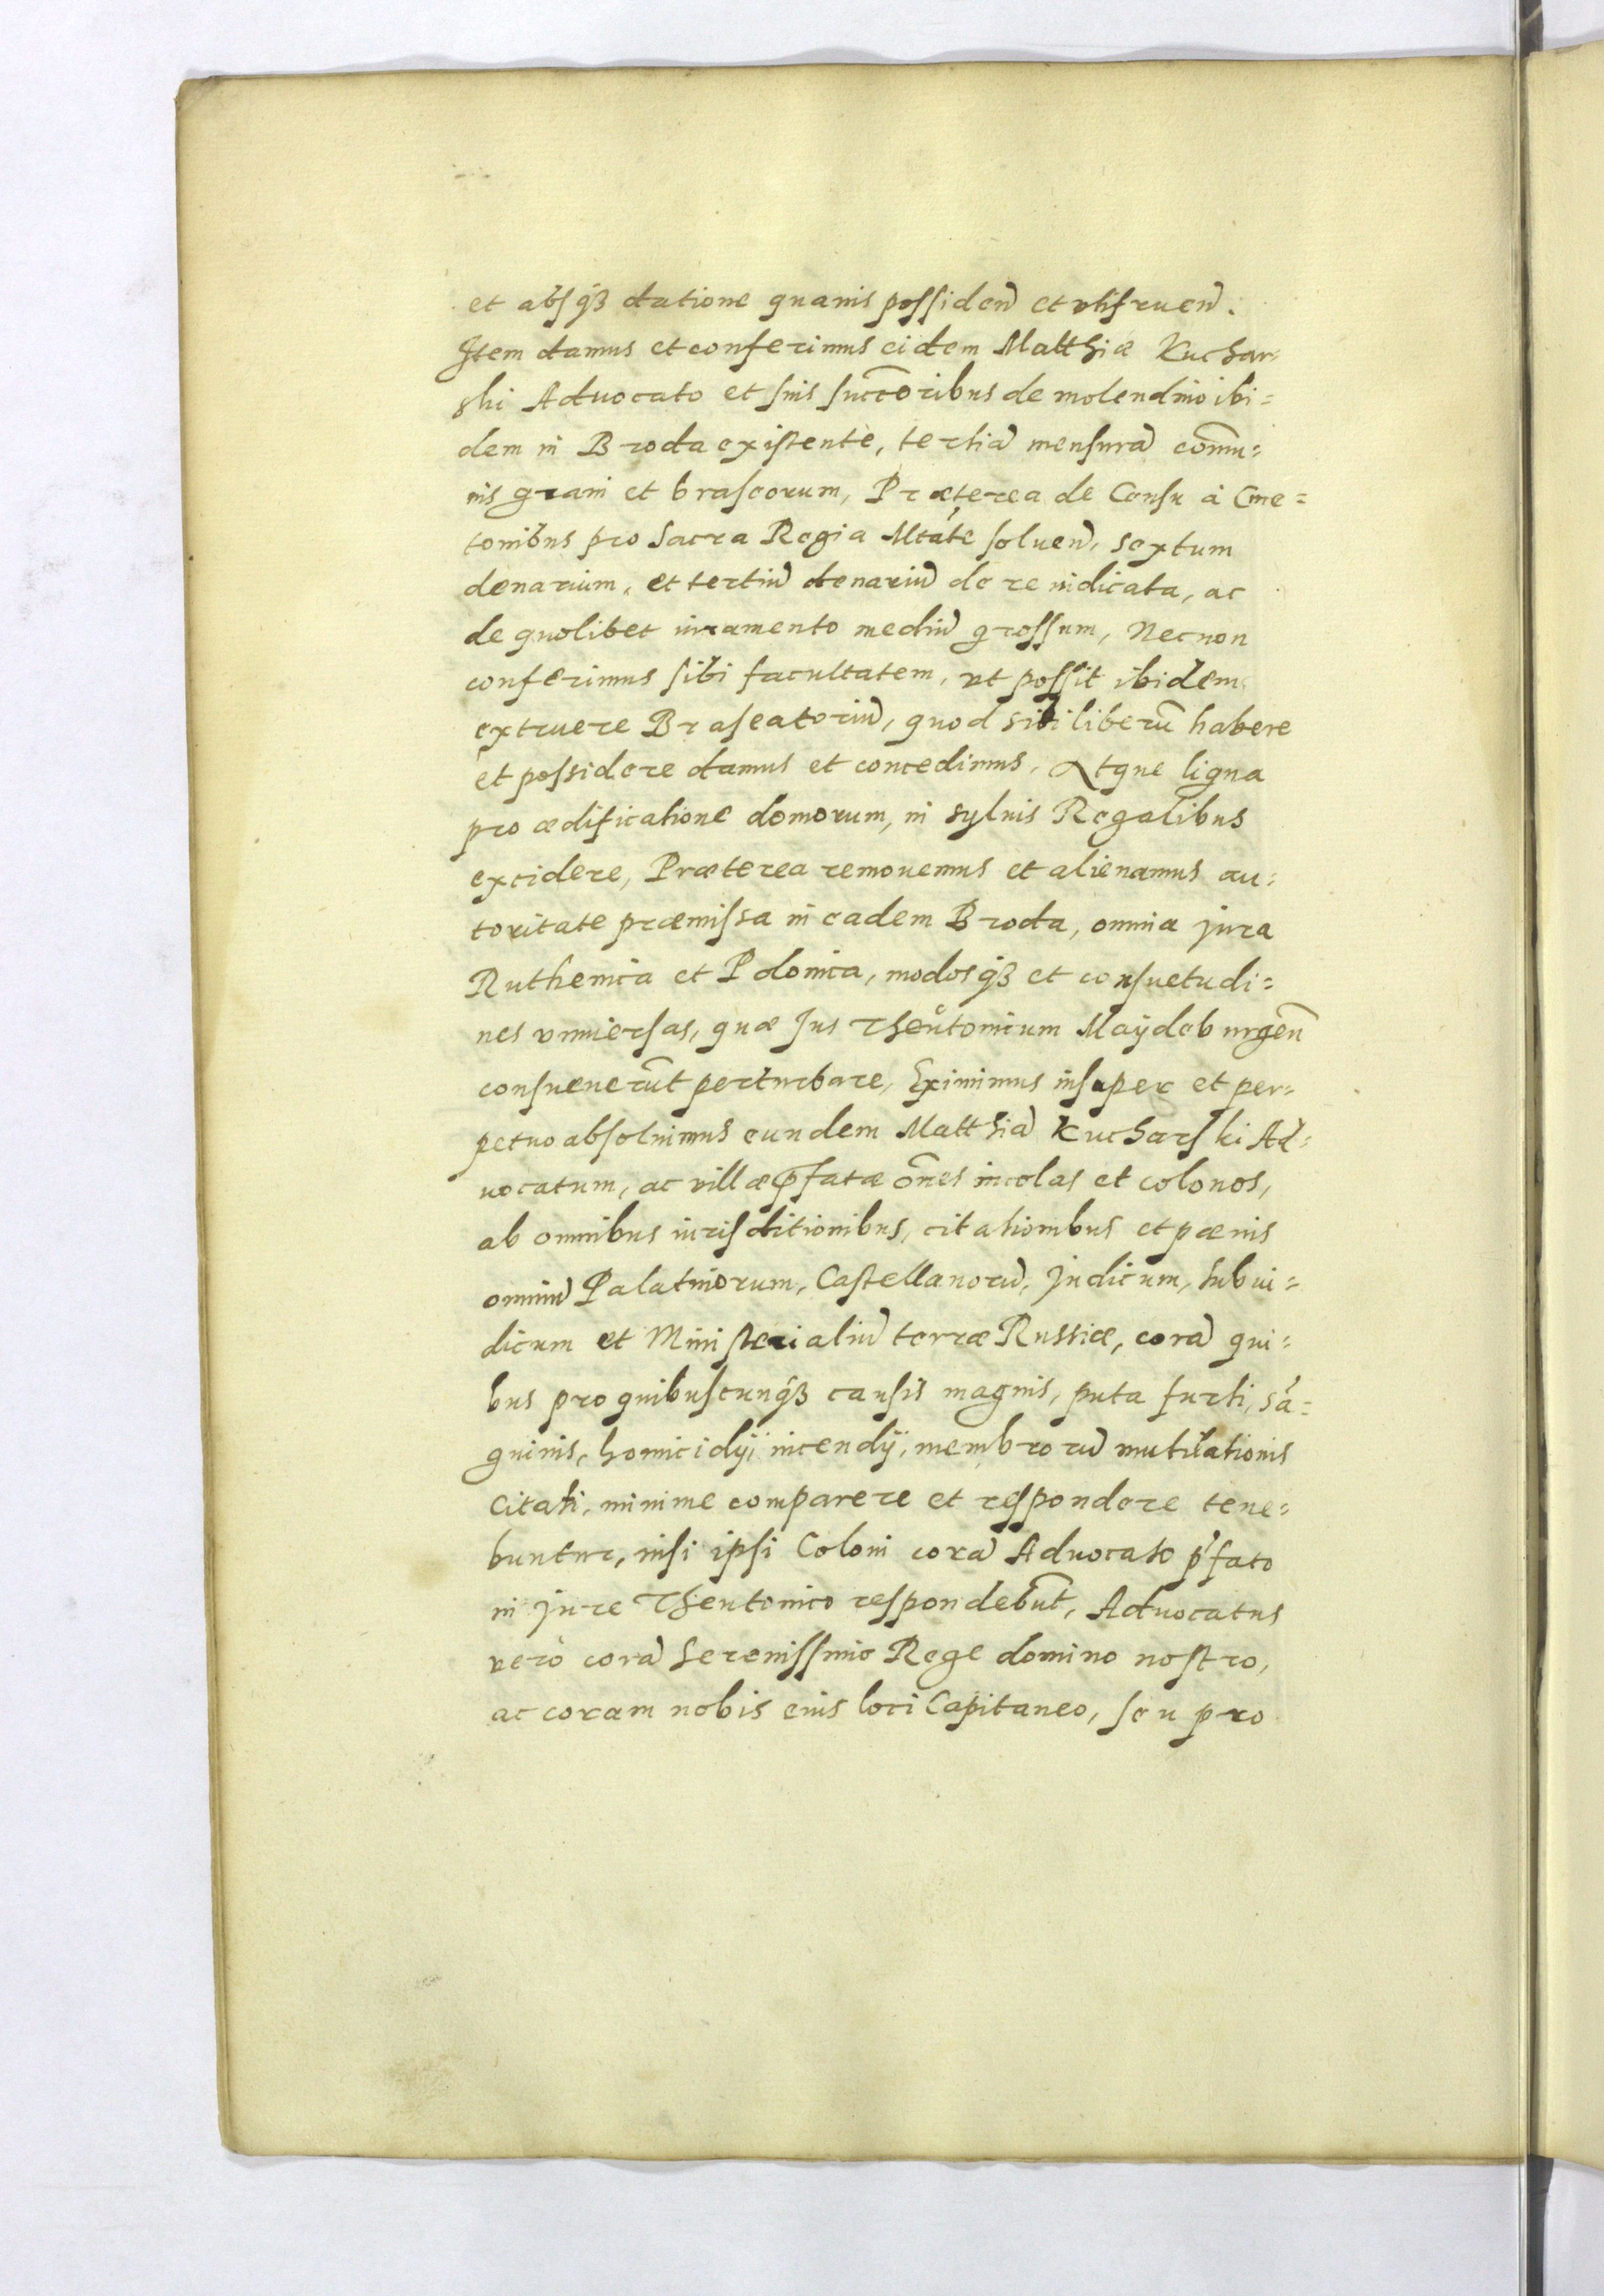 et absq́ȝ datione quauis possiden̄ et vtifruen̄.
Item damus et conferimus eidem Matthiæ Kuchar=
ski Aduocato et suis succōribus de molendino ibi=
dem in Broda existente, tertiā mensurā com̄u=
nis grani et braseorum, Præterea de Censu à Cme=
tonibus pro Sacra Regia Mtáte soluen̄, sextum
denarium, et tertiū denariū de re iudicata, ac
de quolibet iuramento mediū grossum, Necnon
conferimus sibi facultatem, vt possit ibidem
extruere Braseatoriū, quod sibi liberū habere
et possidere damus et concedimus, Atque ligna
pro ædificatione domorum, in syluis Regalibus
excidere, Præterea remouemus et alienamus au=
toritate præmissa in eadem Broda, omnia jura
Ruthenica et Polonica, modosq́ȝ et consuetudi=
nes vniuersas, quæ Jus Theŭtonicum Maÿdeburgen̄
consueuerūt perturbare, Eximimus insuper et per=
petuo absoluimus eundem Matthiā Kucharski Ad=
uocatum, ac villæ p̄fatæ ōnes incolas et colonos,
ab omnibus iurisditionibus, citationibus et pœnis
omniū Palatinorum, Castellanorū, Judicum, Subiu=
dicum et Ministerialiū terræ Russiæ, corā qui=
bus pro quibuscunq́ȝ causis magnis, puta furti, sā=
guinis, homicidÿ, incendÿ, membrorū mutilationis
citati, minime comparere et respondere tene=
buntur, nisi ipsi Coloni corā Aduocato p̄fato
in jure Theutonico respondebūt, Aduocatus
verò corā Serenissimo Rege domino nostro,
ac coram nobis eius loci Capitaneo, seu pro